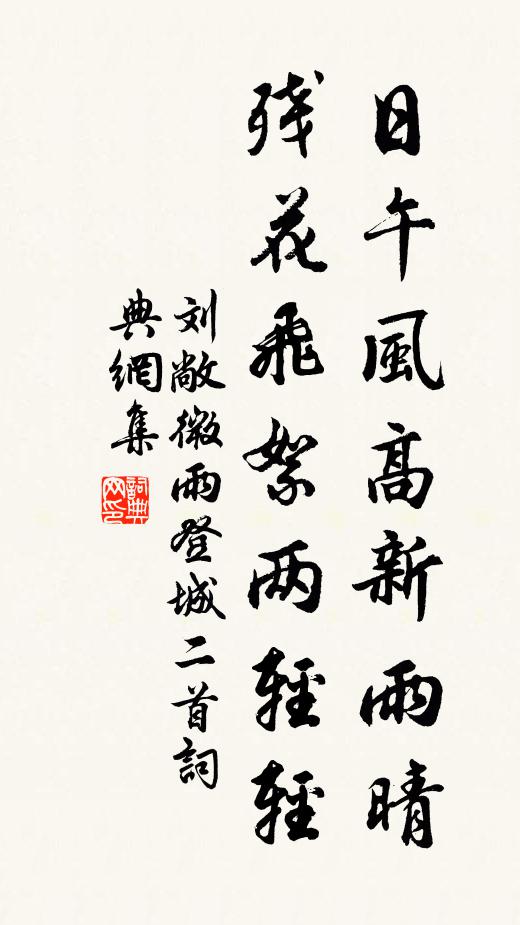 日午風高新雨晴
残花飛絮两輕輕
刘敞微雨登城二首詞
典網集
詞典网印